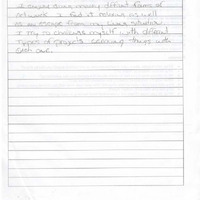 I enjoy doing many diffrent forms of
art work. I find it relaxing as well
as an escape from my
I try to challenge myself with diffrent
types of projects learning things with
each one.